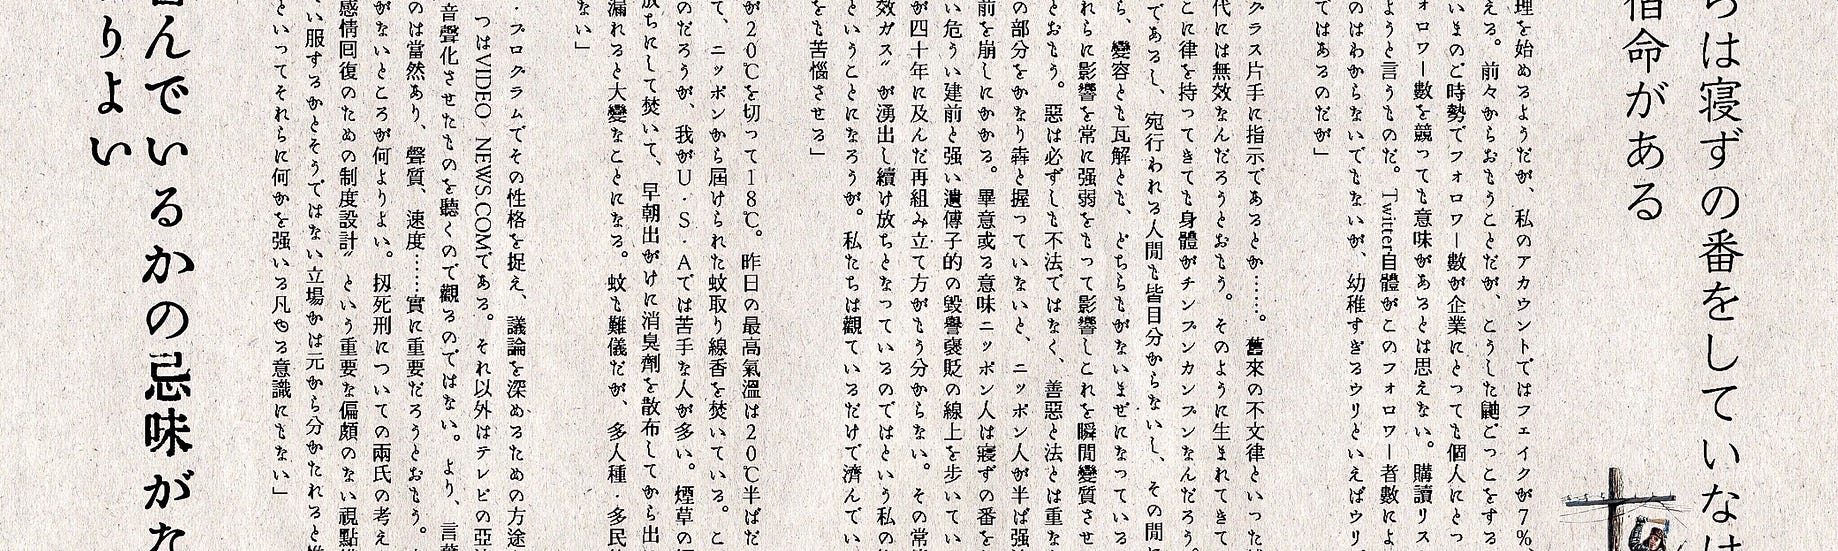 らは寝ずの番をしていなけ
宿命がある
理を始めるようだが、私のアカウントではフェイクが7%、
える。前々からおもうことだが、こうした鼬ごっこをする
いまのご時勢でフォロワー數が企業にとっても個人にとっ
ォロワー數を競っても意味があるとは思えない。購讀リス
ようと言うものだ。Twitter自體がこのフォロワー者數によ
のはわからないでもないが、幼稚すぎるウリといえばウリ
ではあるのだが」
グラス片手に指示であるとか……。舊來の不文律といった
代には無效なんだろうとおもう。そのように生まれてきて
こに律を持ってきても身體がチンプンカンプンなんだろう。
であるし、宛行われる人間も皆目分からないし、その間
ら、變容とも瓦解とも、どちらもがないまぜになっている
れらに影響を常に强弱をもって影響しこれを瞬間變質させ
とおもう。惡は必ずしも不法ではなく、善惡と法とは重な
の部分をかなり犇と握っていないと、ニッポン人が半ば强
前を崩しにかかる。畢意或る意味ニッポン人は寢ずの番を
い危うい建前と强い遺傳子的の毀譽褒貶の線上を步いてい
が四十年に及んだ再組み立て方がもう分からない。その常
效ガス〟が湧出し續け放ちとなっているのではという私の
ということになろうが。私たちは觀ているだけで濟んでい
をも苦惱させる」
が20℃を切って18℃。昨日の最高氣溫は20℃半ばだ
て、ニッポンから屆けられた蚊取り線香を焚いている。こ
のだろうが、我がU・S・Aでは苦手な人が多い。煙草の
放ちにして焚いて、早朝出がけに消臭劑を散布してから出
漏れると大變なことになる。蚊も難儀だが、多人種・多民
ない」
・プログラムでその性格を捉え、議論を深めるための方途
つはVIDEO NEWS.COMである。それ以外はテレビの亞
音聲化させたものを聽くので觀るのではない。より、言葉
のは當然あり、聲質、速度……實に重要だろうとおもう。
がないところが何よりよい。扨死刑についての兩氏の考え
感情回復のための制度設計〟という重要な偏頗のない視點
い服するかとそうではない立場かは元から分かたれると
といってそれらに何かを强いる凡ゆる意識にもない」
んでいるかの忌味がた
りよい